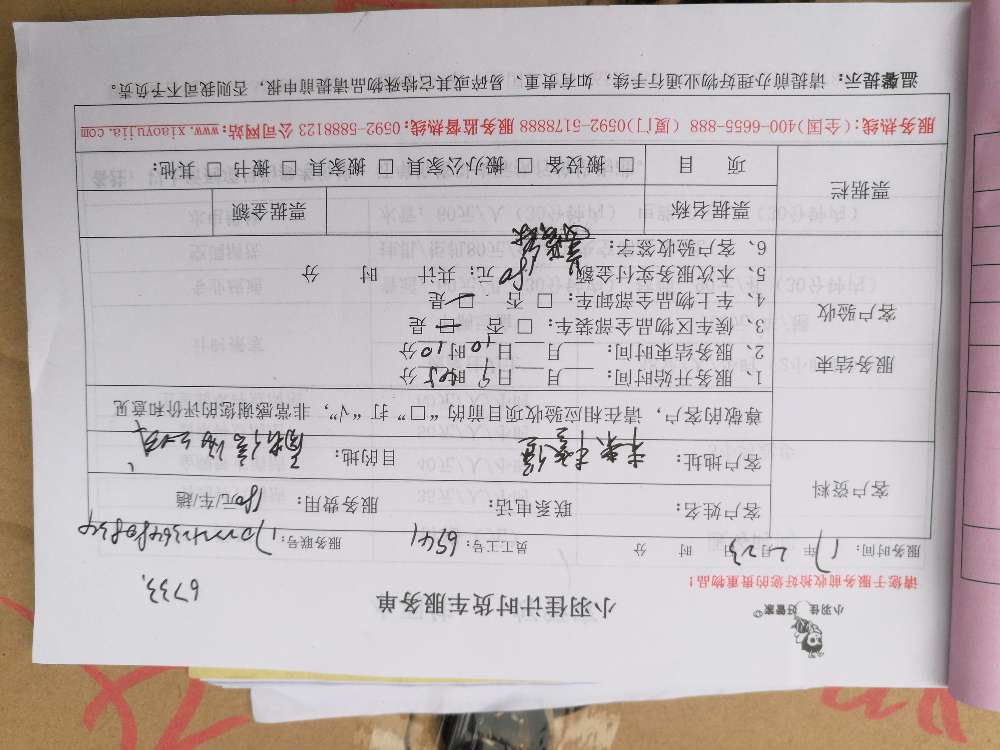 小羽佳 好管家
小羽佳计时货车服务单
6733.
请您于服务前收拾好您的贵重物品!
服务时间: 17 年 2 月 23 日 时 分 员工工号: 6541 服务账号:
客户资料
客户姓名: 联系电话: 服务费用: 180元/车/趟
客户地址: 目的地:
尊敬的客户,请在相应验收项目前的“□”打“√”,非常感谢您的评价和意见
服务结束
客户验收
1、服务开始时间: 月 日 9 时 05 分
2、服务结束时间: 月 日 10 时 10 分
3、候车区物品全部装车: □ 否 □ 是
4、车上物品全部卸车: □ 否 □ 是
5、本次服务实付金额 180 元; 共计 时 分
6、客户验收签字:
票据栏
票据名称 票据金额
项 目 □ 搬设备 □ 搬办公家具 □ 搬家具 □ 搬书 □ 其他:
服务热线:(全国)400-6655-888 (厦门)0592-5178888 服务监督热线:0592-5888123 公司网站:www.xiaoyujia.com
温馨提示: 请提前办理好物业通行手续,如有贵重、易碎或其它特殊物品请提前申报,否则我司不予负责。